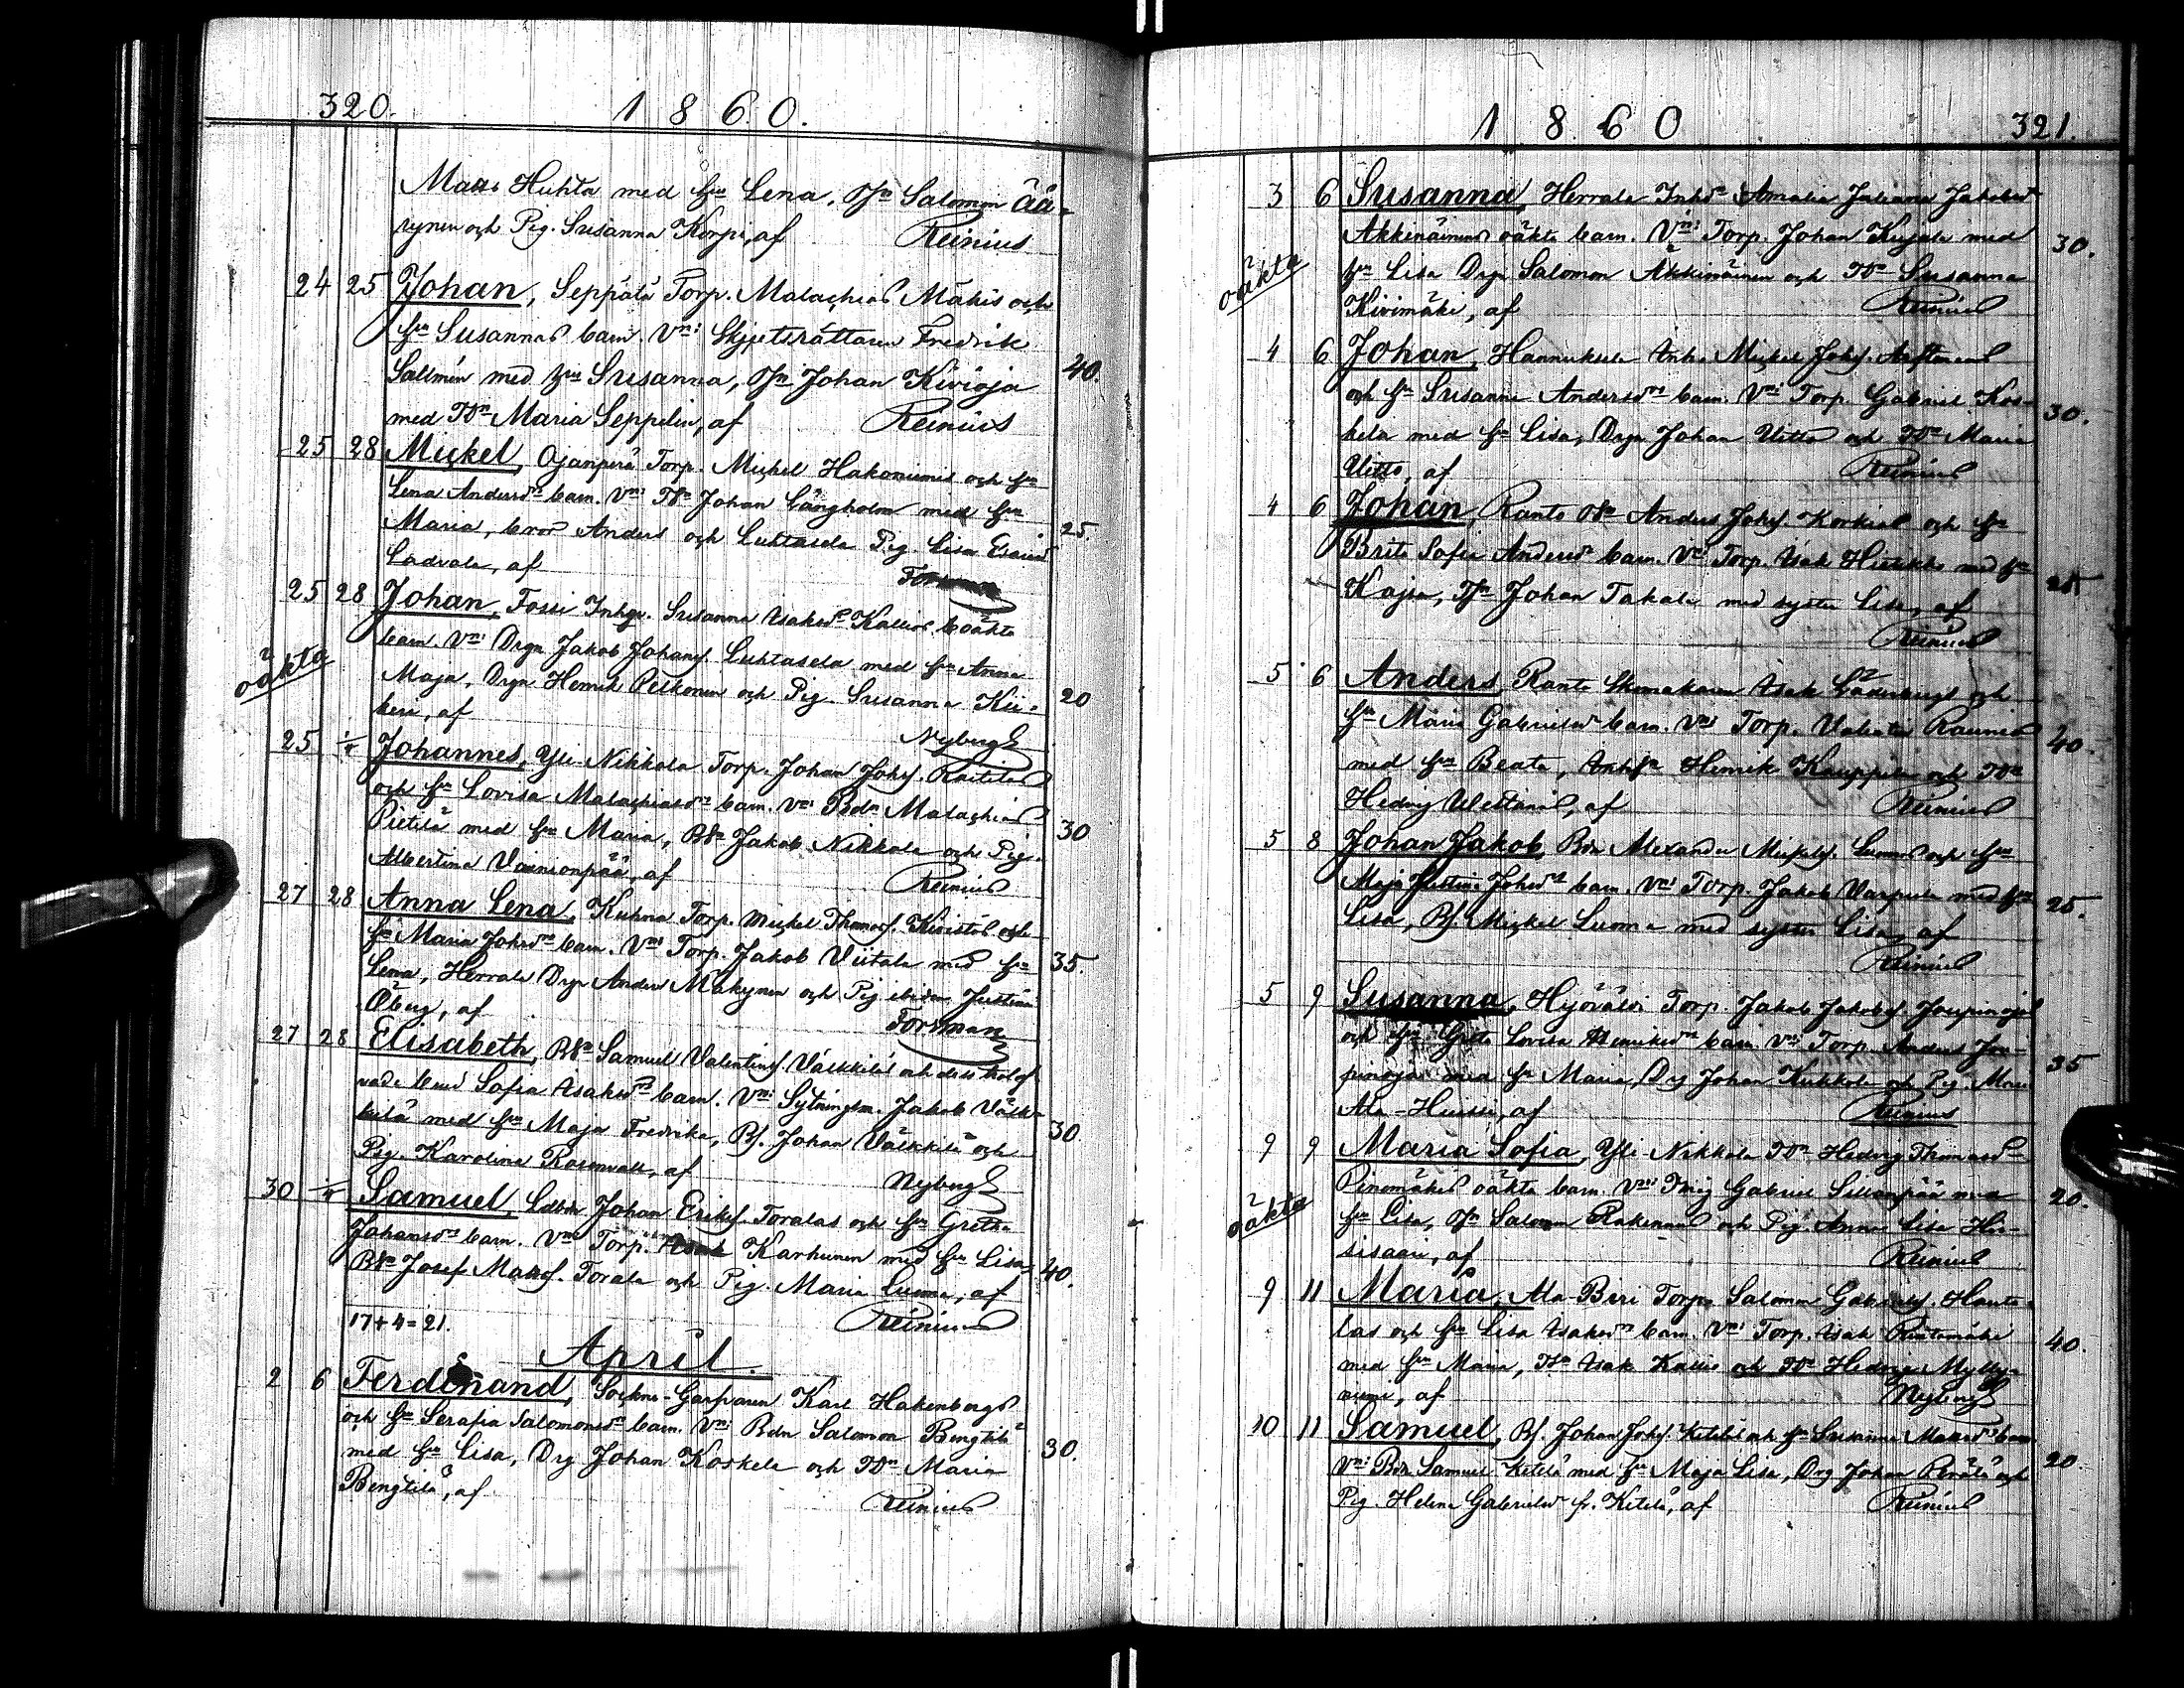 320. 1860.
Matts Huhta med hu Lena, Osn Salomon Ää-
rynen och Pig. Susanna Korpi, af Reinius
24 25 Johan, Seppälä Torp. Malachias Mäkis och
hu Susannas barn. Vn: Skjutsrättaren Fredrik
Sallmén med hu Susanna, Osn Johan Kivioja 40.
med Tdr Maria Seppelin, af Reinius
25 28 Mickel, Ojanperä Torp. Mickel Hakoniemis och hu
Lena Andersdr barn. Vn: Johan Långholm med hu
Maria, bror Anders och Luhtasela Pig. Lisa 25.
Ladvala, af Forsman
25 28 Johan, Fossi Inhys. Susanna Isaksdr Kallios oäkta
oäkta barn. Vn: Drgn Jakob Johansf. Luhtasela med hu Anna
Maja, Drgn Henrik Pelkonen och Pig. Susanna Kii- 20
keri, af Nyberg
25 1/4 Johannes, Yli-Nikkola Torp. Johan Johsf. Raitilas
och hu Lovisa Malachiasdr barn. Vn: Bdn Malachias
Pietilä med hu Maria, Jakob Nikkola och Pig. 30
Albertina Vainionpää, af Reinius
27 28 Anna Lena, Kuhna Torp. Mickel Thomasf. Kivistös och
hu Maria Johsdr barn. Vn: Torp. Jakob Viitala med hu 35.
Lena, Herrala Drgn Anders Mäkynen och Pig ibidem Justina
Öberg, af Forsman
27 28 Elisabeth, Samuel Valentinsf. Välkkiläs och dess trolof-
vade brud Sofia Isaksdr barn. Vn: Sytningsm. Jakob Välk-
kilä med hu Maja Fredrika, Bs. Johan Välkkilä och 30.
Pig. Karolina Rosenvall, af Nyberg
30 1/4 Samuel, Johan Eriksf. Toralas och hu Greta
Johansdr barn. Vn: Torp. Karhunen med hu Lisa, 40.
Josef Mattsf. Torala och Pig. Maria Luoma, af
17+4=21. Reinius
April.
2 6 Ferdinand, Sockne-Garfvaren Karl Hakenbergs
och hu Serafia Salomonsdr barn. Vn: Bdn Salomon Bengtilä
med hu Lisa, Drg Johan Koskela och Tdr Maria 30.
Bengtilä, af Reinius
1860 321.
3 6 Susanna, Herrala Inhs Amalia Juliana Jakobsdr
Akkinäinens oäkta barn. Vn: Torp. Johan Kujala med 30.
oäkta hu Lisa Drgn Salomon Akkinäinen och Tdr Susanna
Kivimäki, af Reinius
4 6 Johan, Hannuksela Inh. Mickel Johsf.
och hu Susanna Andersdr barn. Vn: Torp. Gabriel Kos- 30.
kela med hu Lisa, Drgn Johan Uitto och Tdr Maria
Uitto, af Reinius
4 6 Johan, Ranto Anders Johsf. Korkias och hu
Brita Sofia Andersdr barn. Vn: Torp. Isak med hu
Kajsa, Johan Takala med syster Lisa, af
Reinius
5 6 Anders, Ranto Skomakaren Isak Söderbergs och
hu Maria Gabrielsdr barn. Vn: Torp. Valentin Raunio 40.
med hu Beata, Henrik Kauppila och Tdr
Hedvig, af Reinius
5 8 Johan Jakob, Bdn Alexander Mickelsf. Luomas och hu
Maja Justina Johsdr barn. Vn: Torp. Jakob Varpula med hu 25.
Lisa, Bs. Mickel Luoma med syster Lisa, af
Reinius
5 9 Susanna, Torp. Jakob Jakobsf. Joupinojas
och hu Greta Lovisa Henriksdr barn. Vn: Torp. Anders Jou- 35
pinoja med hu Maria, Drg Johan Kukkola och Pig Maria
Ala-Hiussi, af Reinius
9 9 Maria Sofia, Yli Nikkola Tdr Hedvig Thomasdr
Pinomäkis oäkta barn. Vn: Gabriel Sillanpää med 20.
oäkta hu Lisa, Osn Salomon Rakenaus och Pig. Anna Lisa Hie-
sisaari, af Reinius
9 11 Maria, Ala-Biri Torp. Salomon Gabrielsf. Hauta-
las och hu Lisa Isaksdr barn. Vn: Torp. Isak Rintamäki 40.
med hu Maria, Isak Kallio och Tdr Hedvig Mylly-
niemi, af Nyberg
10 11 Samuel, Bs. Johan Johsf. Ketiläs och hu Susanna Mattsdr barn
Vn: Bdn Samuel Ketilä med hu Maja Lisa, Drg Johan Perälä och 20.
Pig. Helena Gabrielsdr fr. Ketilä, af Reinius